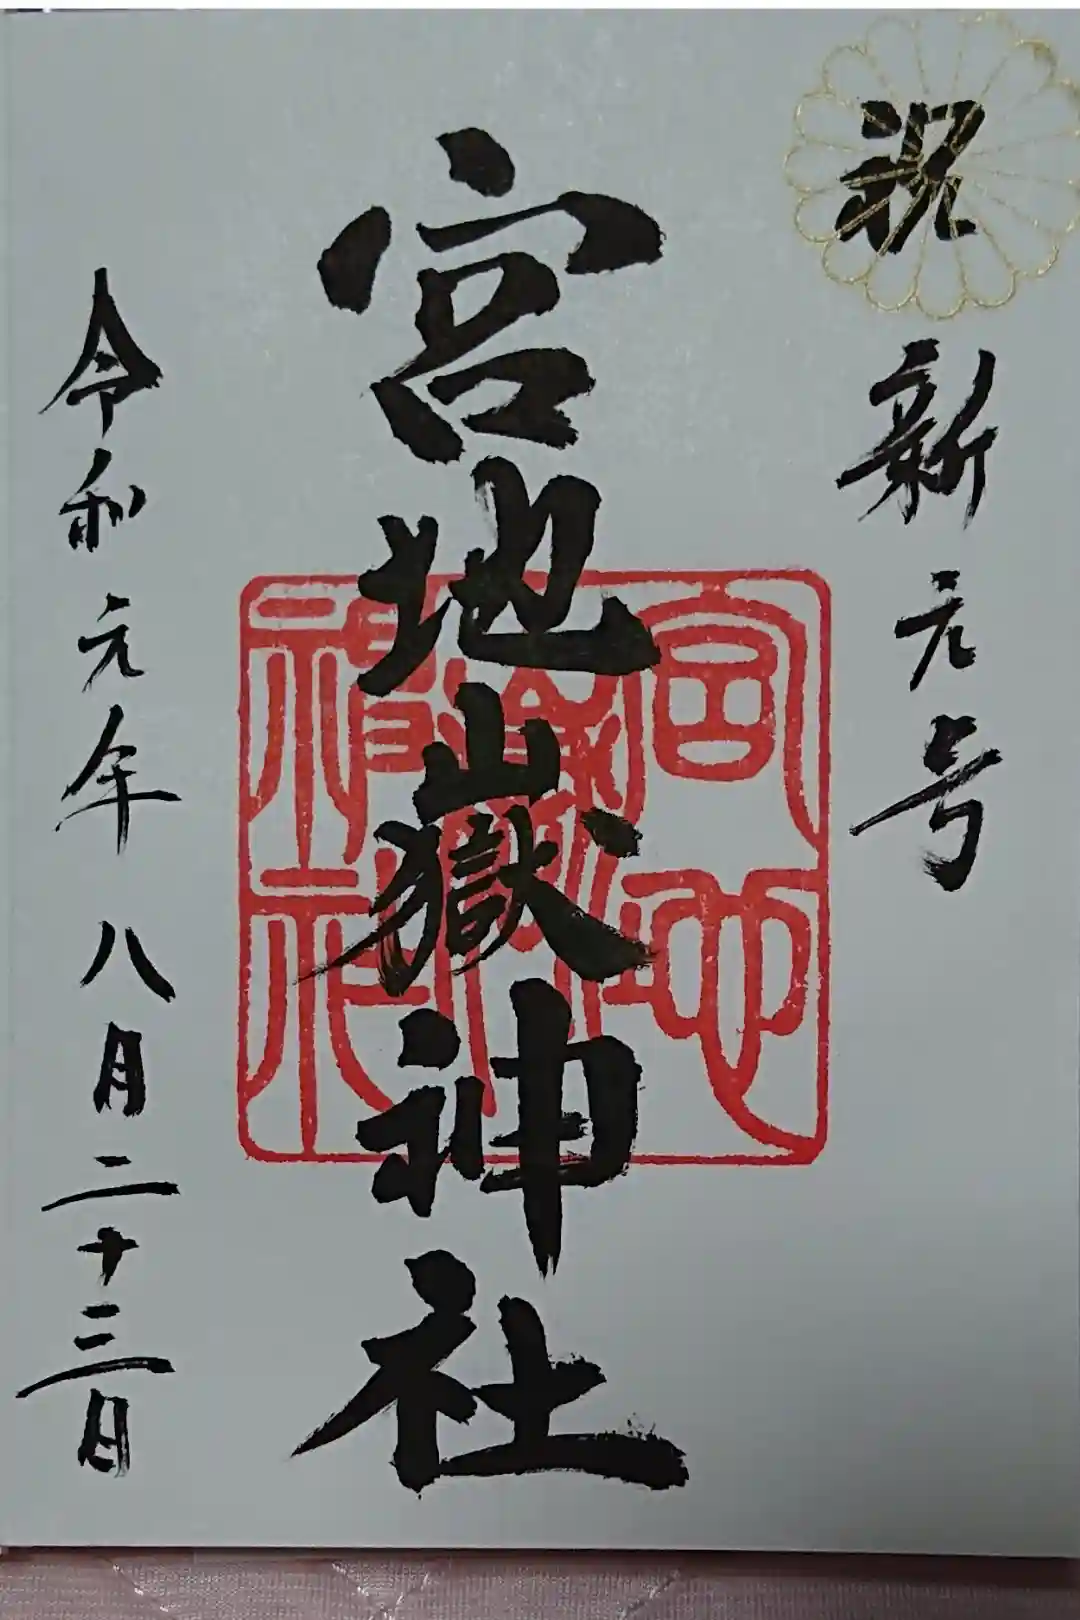 祝
新元号
宮地嶽神社
宮地嶽神社
令和元年八月二十三日